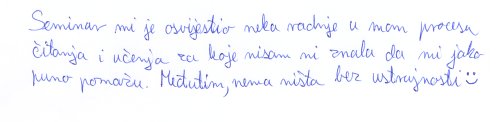 Seminar mi je osvijestio neka radnje u mom procesu
čitanja i učenja za koje nisam ni znala da mi jako
puno pomažu. Međutim, nema ništa bez ustrajnosti ☺